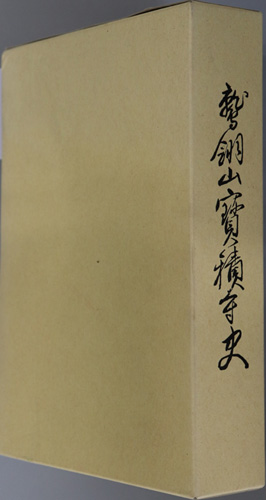 鷲翎山寳積寺史